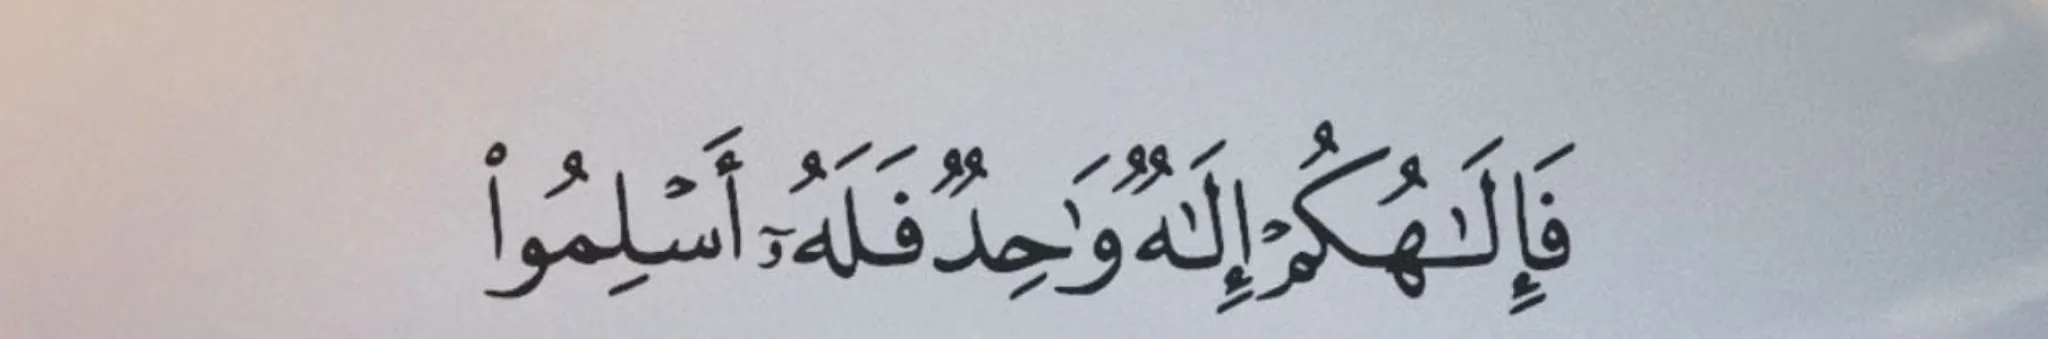 فَإِلَـٰهُكُمْ إِلَـٰهٌ وَٰحِدٌ فَلَهُۥٓ أَسْلِمُوا۟